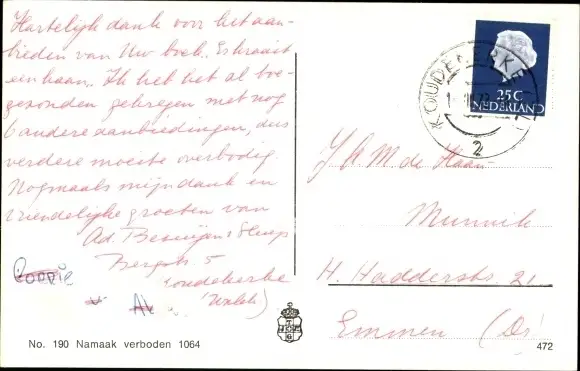 Hartelijk dank voor het aan-
bieden van Uw boek. Er kraait
een haan. Ik heb het al toe-
gezonden gekregen met nog
6 andere aanbiedingen, dus
verdere moeite overbodig
Nogmaals mijn dank en
vriendelijke groeten van
Ad.
Bergstr. 5
Oudekerke
(Walch)
No. 190 Namaak verboden 1064
25c
NEDERLAND
2
de Haan
Munnik
H. Hadderstr. 21
Emmen (Dr)
472